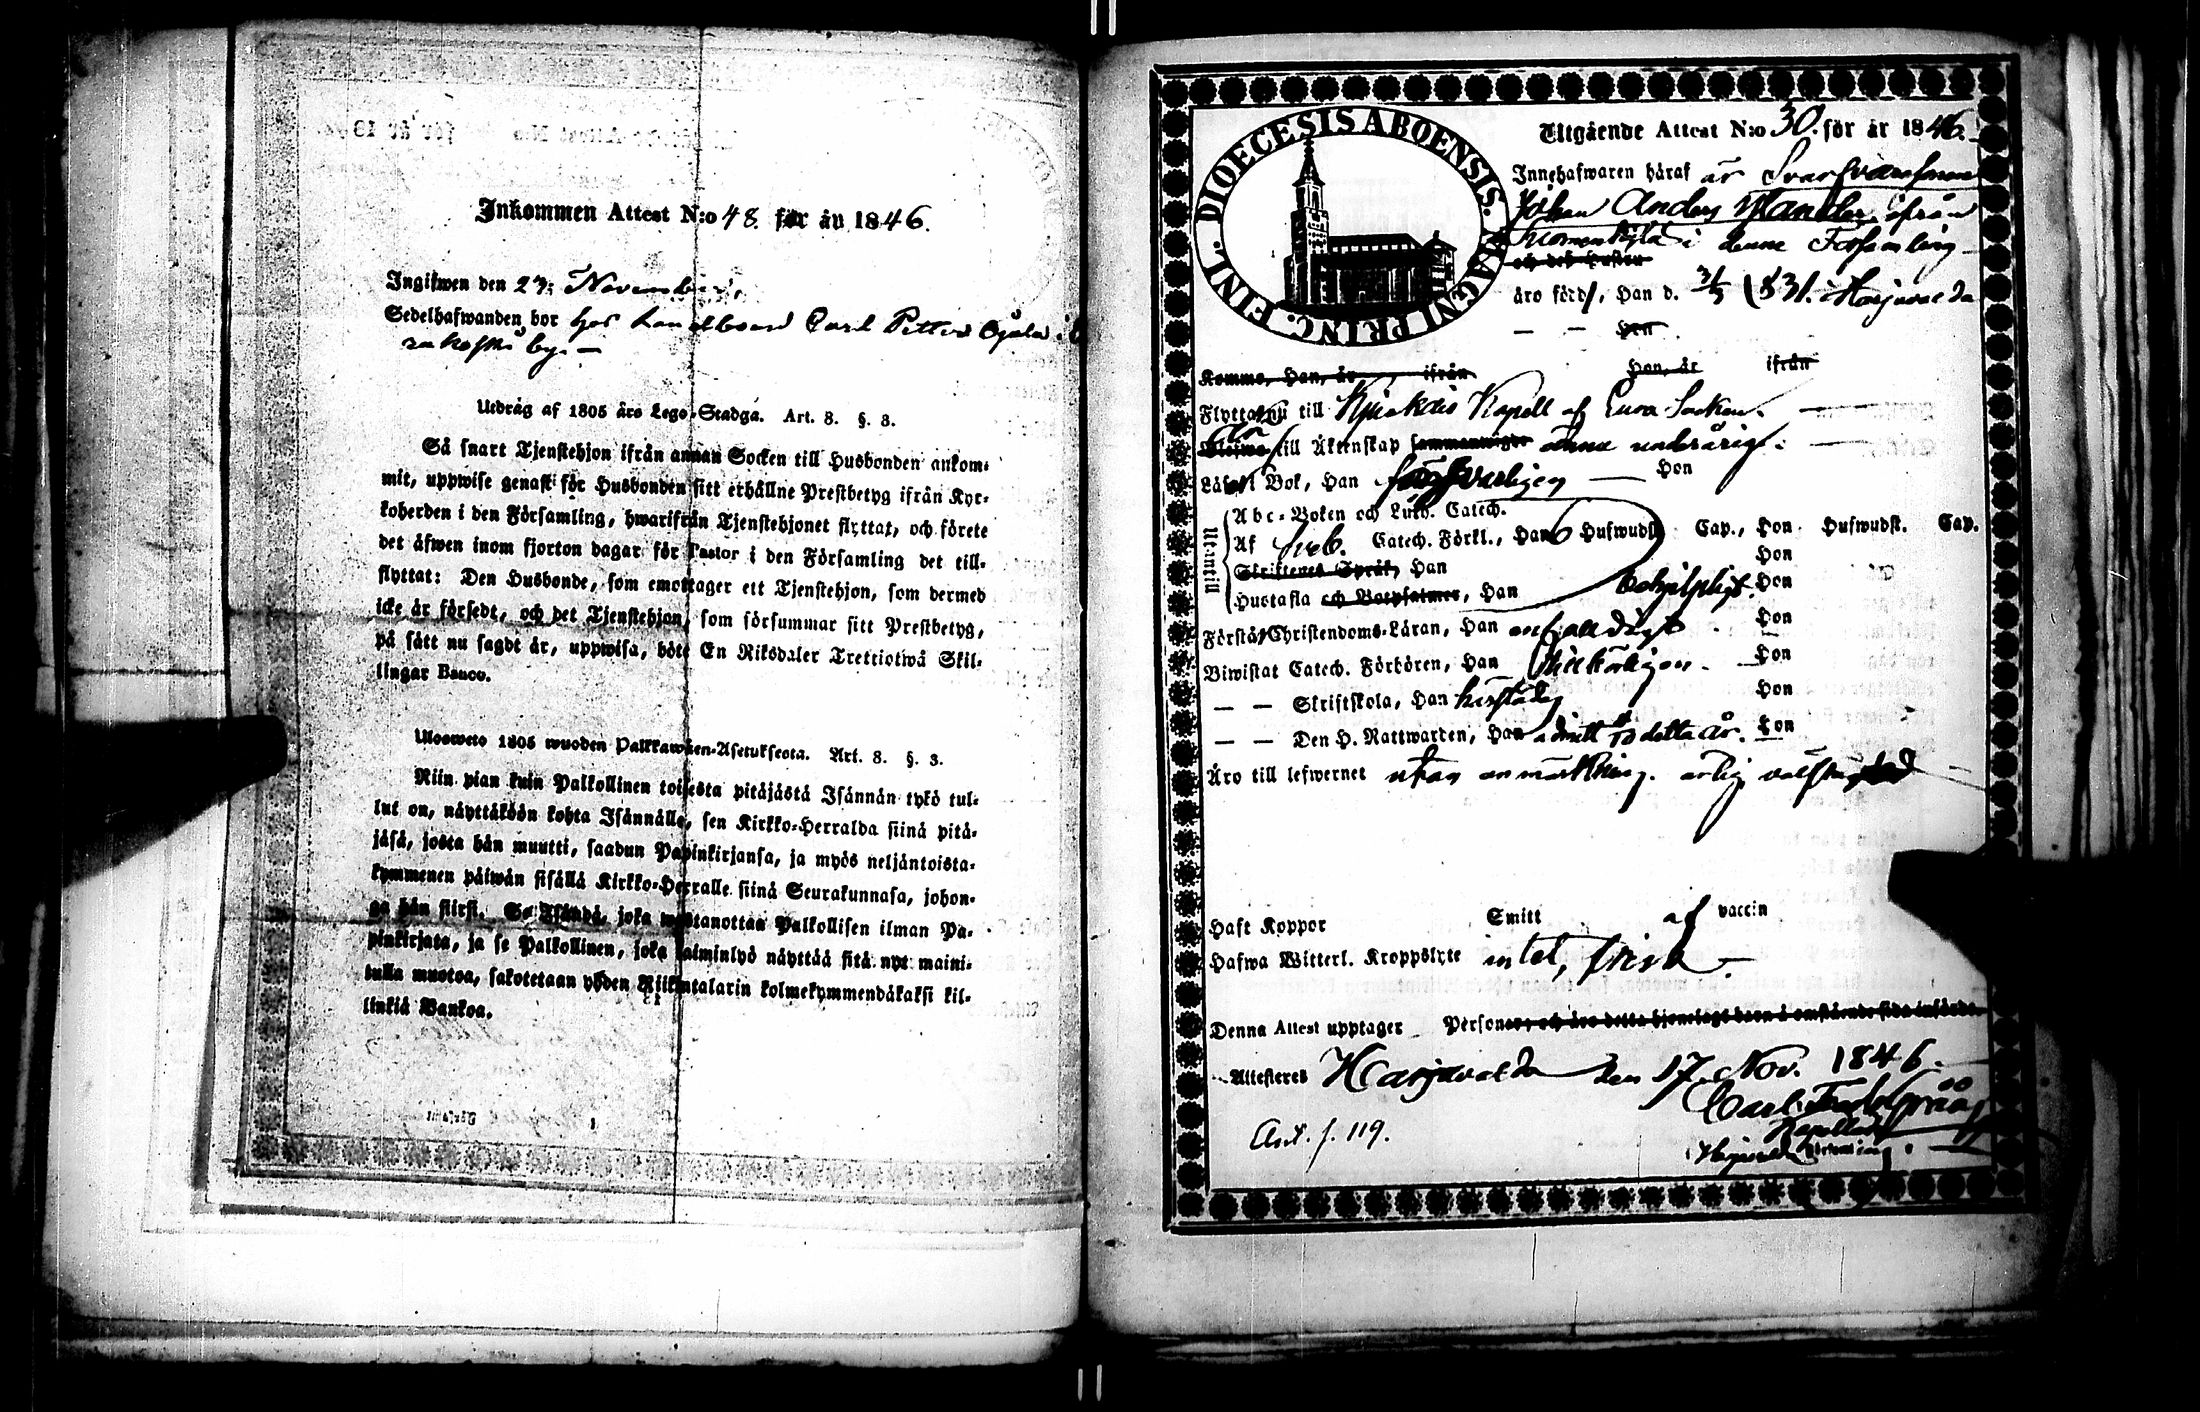 Inkommen Attest N:o 48. för år 1846.
Ingifwen den 23: November,
Sedelhafwanden bor hos Landbond Carl Petter Ojala i
rakoski by. —
Utdrag af 1805 års Lego-Stadga. Art. 8. §. 3.
Så snart Tjenstehjon ifrån annan Socken till Husbonden ankom-
mit, uppwise genast för Husbonden sitt erhållne Prestbetyg ifrån Kyr-
koherden i den Församling, hwarifrån Tjenstehjonet flyttat, och förete
det äfwen inom fjorton dagar för Pastor i den Församling det till-
flyttat: Den Husbonde, som emottager ett Tjenstehjon, som dermed
icke är försedt, och det Tjenstehjon, som försummar sitt Prestbetyg,
på sätt nu sagdt är, uppwisa, böte En Riksdaler Trettiotwå Skil-
lingar Banco.
Ulosweto 1805 wuoden Palkkawäen-Asetuksesta. Art. 8. §. 3.
Niin pian kuin Palkollinen toisesta pitäjästä Isännän tykö tul-
lut on, näyttäköön kohta Isännälle, sen Kirkko-Herralda siinä pitä-
jäsä, josta hän muutti, saadun Papinkirjansa, ja myös neljäntoista-
kymmenen päiwän sisällä Kirkko-Herralle siinä Seurakunnasa, johon-
ga hän siirsi. Se Isändä, joka wastanottaa Palkollisen ilman Pa-
pinkirjata, ja se Palkollinen, joka laiminlyö näyttää sitä nyt maini-
tulla muotoa, sakotetaan yhden Riikintalarin kolmekymmendäkaksi kil-
linkiä Bankoa.
DIOECESIS ABOENSIS. MAGNI PRINC. FINL.
Utgående Attest N:o 30. för år 1846.
Innehafwaren häraf är
Johan Anders ifrån
i denne Församling
och des hustru
äro född, Han d. 3/5 1831. i Harjavalda
— — Hon
Komme, Han, är ifrån Hon, är ifrån
Flyttar nu till Kjukais Kapell af Eura Socken. —
till Äktenskap sammanwigde ännu underårig. —
Läser i Bok, Han försvarligen — Hon
Utantill
Abc-Boken och Luth. Catech.
Af Sveb. Catech. Förkl., Han Hufwudst. Cap., Hon Hufwudst. Cap.
Skriftenes Språk, Han Hon
Hustafla och Botpsalmer, Han behjelpligt. Hon
Förstår Christendoms-Läran, Han enfalldigt. Hon
Biwistat Catech. Förhören, Han Hon
— — Skriftskola, Han Hon
— — Den H. Nattwarden, Han detta år. Hon
Äro till lefwernet utan anmärkning. ärlig
Haft Koppor Smitt af vaccin
Hafwa Witterl. Kroppslyte intet, frisk —
Denna Attest upptager Personer, och äro detta hjonelags barn å omstående sida införda.
Attesteres Harjavalda den 17. Nov. 1846.
Carl
Ant. f. 119.
Harjavalda